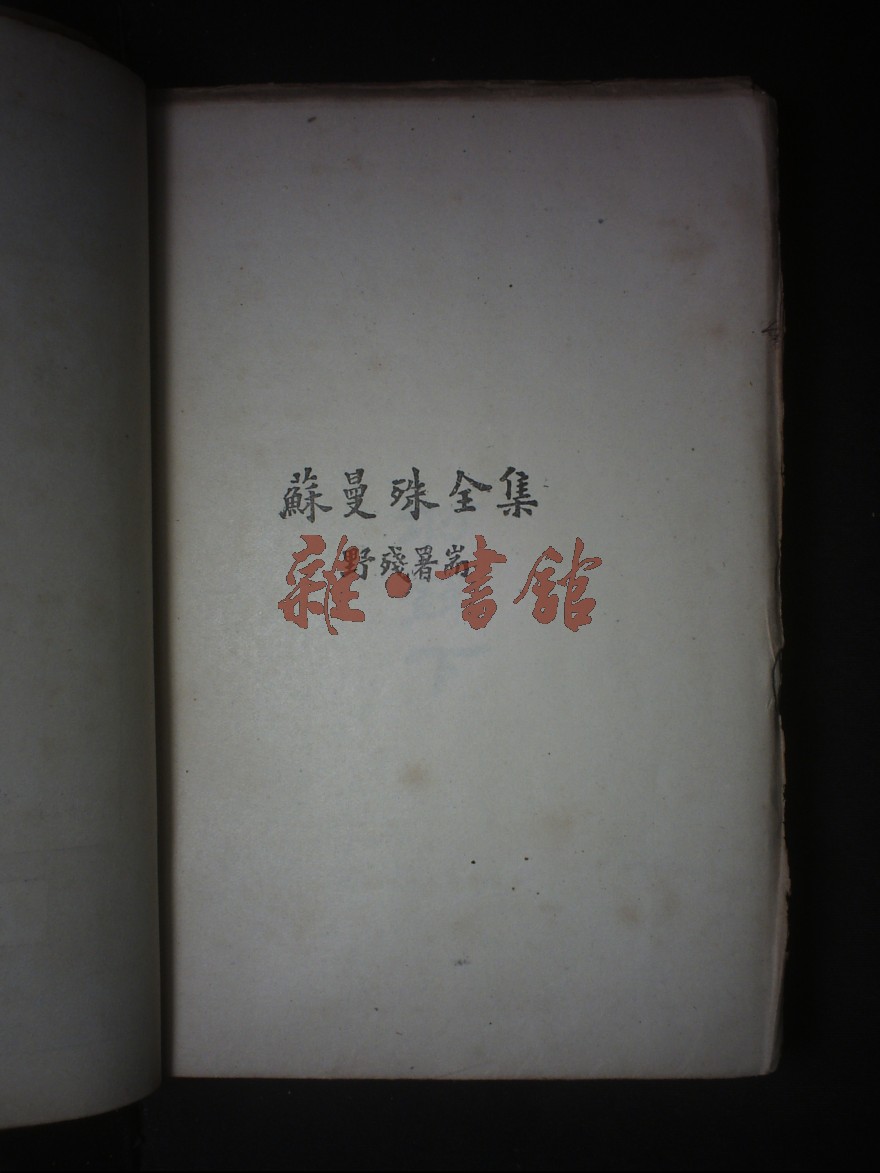 蘇曼殊全集
野殘署耑
雜·書館